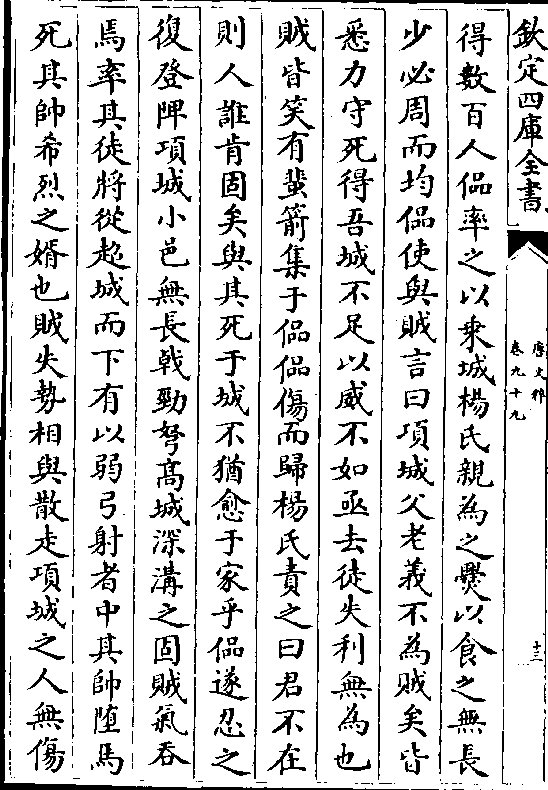 欽定四庫全書
唐文粹
卷九十九
十三
得數百人侣率之以乗城楊氏親為之爨以食之無長
少必周而均侣使與賊言曰項城父老義不為賊矣皆
悉力守死得吾城不足以威不如亟去徒失利無為也
賊皆笑有蜚箭集于侣侣傷而歸楊氏責之曰君不在
則人誰肯固矣與其死于城不猶愈于家乎侣遂忍之
復登陴項城小邑無長㦸勁弩髙城深溝之固賊氣吞
焉率其徒將從超城而下有以弱弓射者中其帥堕馬
死其帥希烈之婿也賊失勢相與散走項城之人無傷